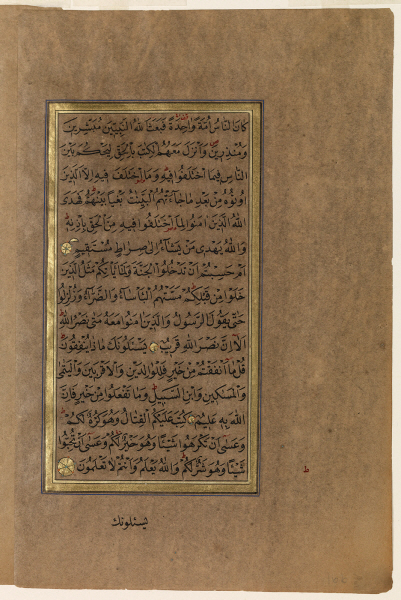 كَانَ النَّاسُ أُمَّةً وَاحِدَةً فَبَعَثَ اللهُ النَّبِيِّينَ مُبَشِّرِينَ
وَمُنْذِرِينَ وَأَنْزَلَ مَعَهُمُ الْكِتٰبَ بِالْحَقِّ لِيَحْكُمَ بَيْنَ
النَّاسِ فِيمَا اخْتَلَفُوا فِيهِ وَمَا اخْتَلَفَ فِيهِ إِلَّا الَّذِينَ
أُوتُوهُ مِنْ بَعْدِ مَا جَاءَتْهُمُ الْبَيِّنٰتُ بَغْيًا بَيْنَهُمْ فَهَدَى
اللهُ الَّذِينَ اٰمَنُوا لِمَا اخْتَلَفُوا فِيهِ مِنَ الْحَقِّ بِإِذْنِهِ
وَاللهُ يَهْدِي مَنْ يَشَاءُ إِلَى صِرَاطٍ مُسْتَقِيمٍ
أَمْ حَسِبْتُمْ أَنْ تَدْخُلُوا الْجَنَّةَ وَلَمَّا يَأْتِكُمْ مَثَلُ الَّذِينَ
خَلَوْا مِنْ قَبْلِكُمْ مَسَّتْهُمُ الْبَأْسَاءُ وَالضَّرَّاءُ وَزُلْزِلُوا
حَتَّى يَقُولَ الرَّسُولُ وَالَّذِينَ اٰمَنُوا مَعَهُ مَتَى نَصْرُ اللهِ
أَلَا إِنَّ نَصْرَ اللهِ قَرِيبٌ يَسْئَلُونَكَ مَاذَا يُنْفِقُونَ
قُلْ مَا أَنْفَقْتُمْ مِنْ خَيْرٍ فَلِلْوَالِدَيْنِ وَالْأَقْرَبِينَ وَالْيَتٰمَى
وَالْمَسٰكِينِ وَابْنِ السَّبِيلِ وَمَا تَفْعَلُوا مِنْ خَيْرٍ فَإِنَّ
اللهَ بِهِ عَلِيمٌ كُتِبَ عَلَيْكُمُ الْقِتَالُ وَهُوَ كُرْهٌ لَكُمْ
وَعَسَى أَنْ تَكْرَهُوا شَيْئًا وَهُوَ خَيْرٌ لَكُمْ وَعَسَى أَنْ تُحِبُّوا
شَيْئًا وَهُوَ شَرٌّ لَكُمْ وَاللهُ يَعْلَمُ وَأَنْتُمْ لَا تَعْلَمُونَ
يسئلونك